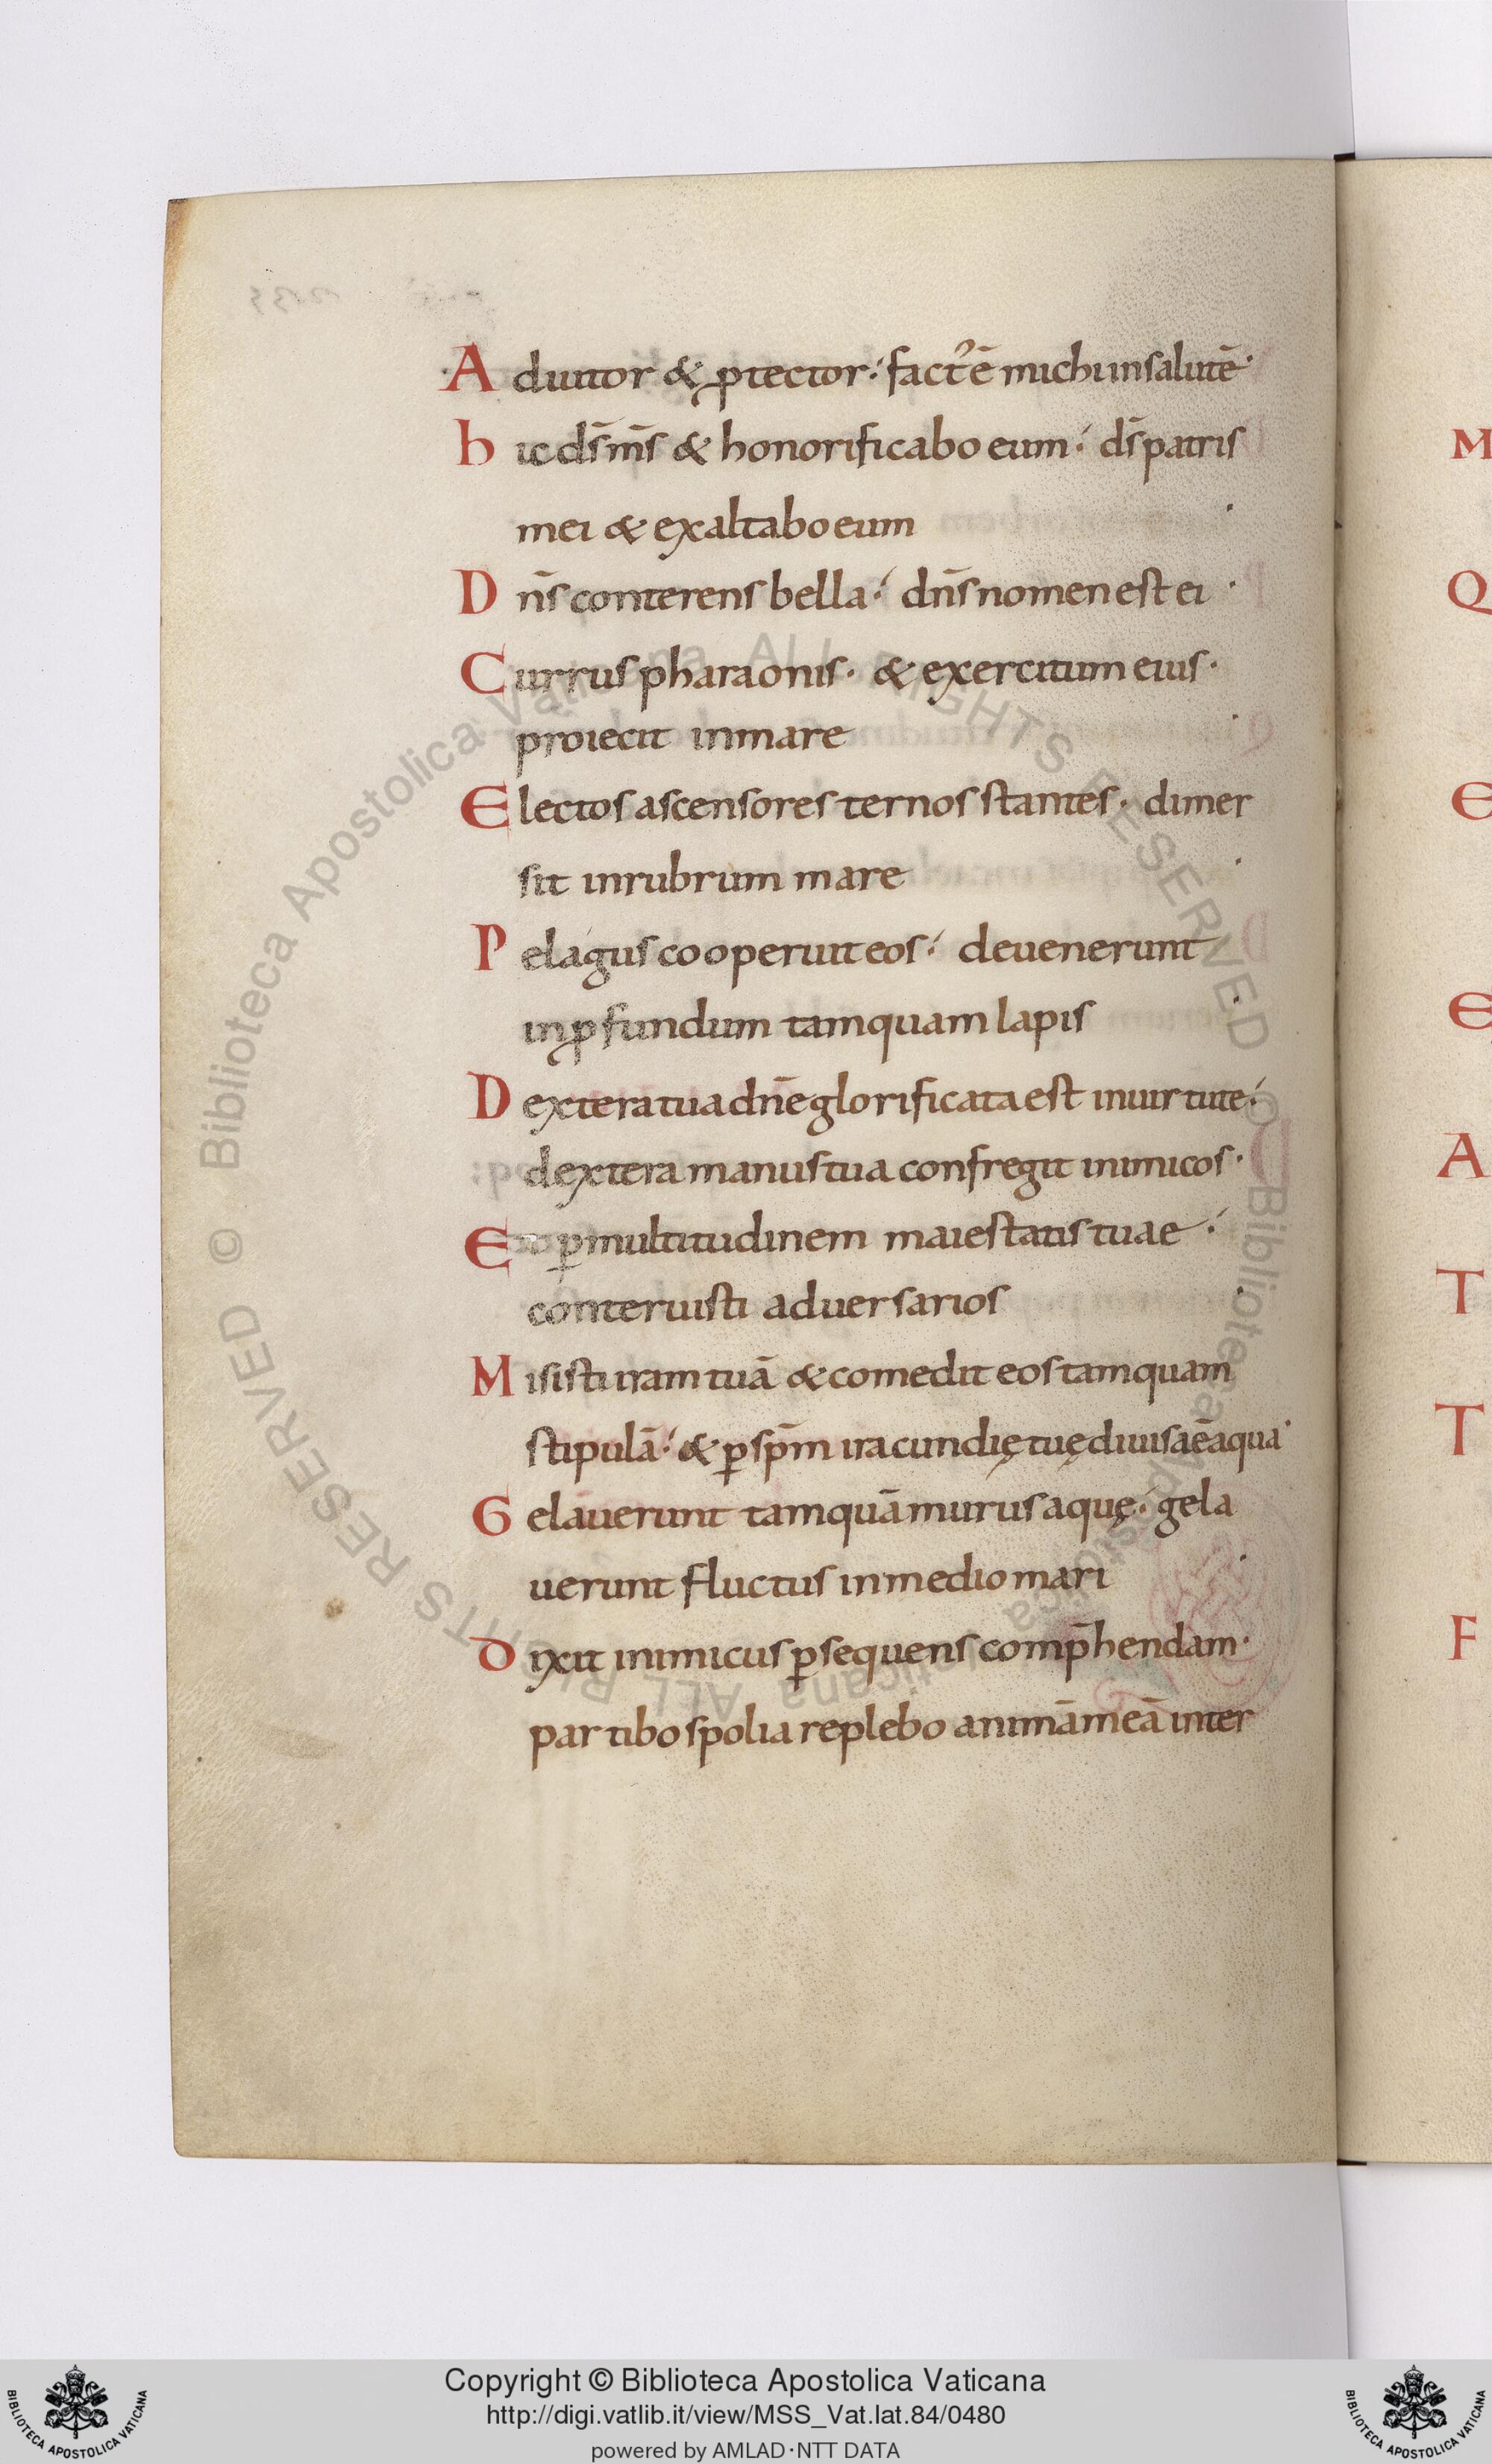 Adiutor & ꝓtector· fact᾽ ē michi insalutē·
hic dſ̄ mſ̄ & honorificabo eum· dſ̄ patris
mei & exaltabo eum ·
Dn̄s conterens bella· dn̄s nomen est ei ·
Currus pharaonis· & exercitum eius·
proiecit inmare ·
Electos ascensores ternos stantes· dimer
sit inrubrum mare ·
Pelagus cooperuit eos· deuenerunt
inꝓfundum tamquam lapis ·
Dextera tua dn̄e glorificata est inuirtute·
dextera manus tua confregit inimicos·
Et ꝑmultitudinem maiestatis tuae·
conteruisti aduersarios ·
Misisti iram tuā & comedit eos tamquam
stipulā· & ꝑ sp̄m iracundię tuę diuisa ē aqua·
Gelauerunt tamquā murus aquę· gela
uerunt fluctus inmedio mari ·
Dixit inimicus ꝑsequens comp̄hendam·
partibo spolia replebo animā meā inter
M
Q
E
E
A
T
T
F
© Biblioteca Apostolica Vaticana ALL RIGHTS RESERVED
© Biblioteca Apostolica Vaticana ALL RIGHTS RESERVED
BIBLIOTECA APOSTOLICA VATICANA
Copyright © Biblioteca Apostolica Vaticana
http://digi.vatlib.it/view/MSS_Vat.lat.84/0480
powered by AMLAD·NTT DATA
BIBLIOTECA APOSTOLICA VATICANA